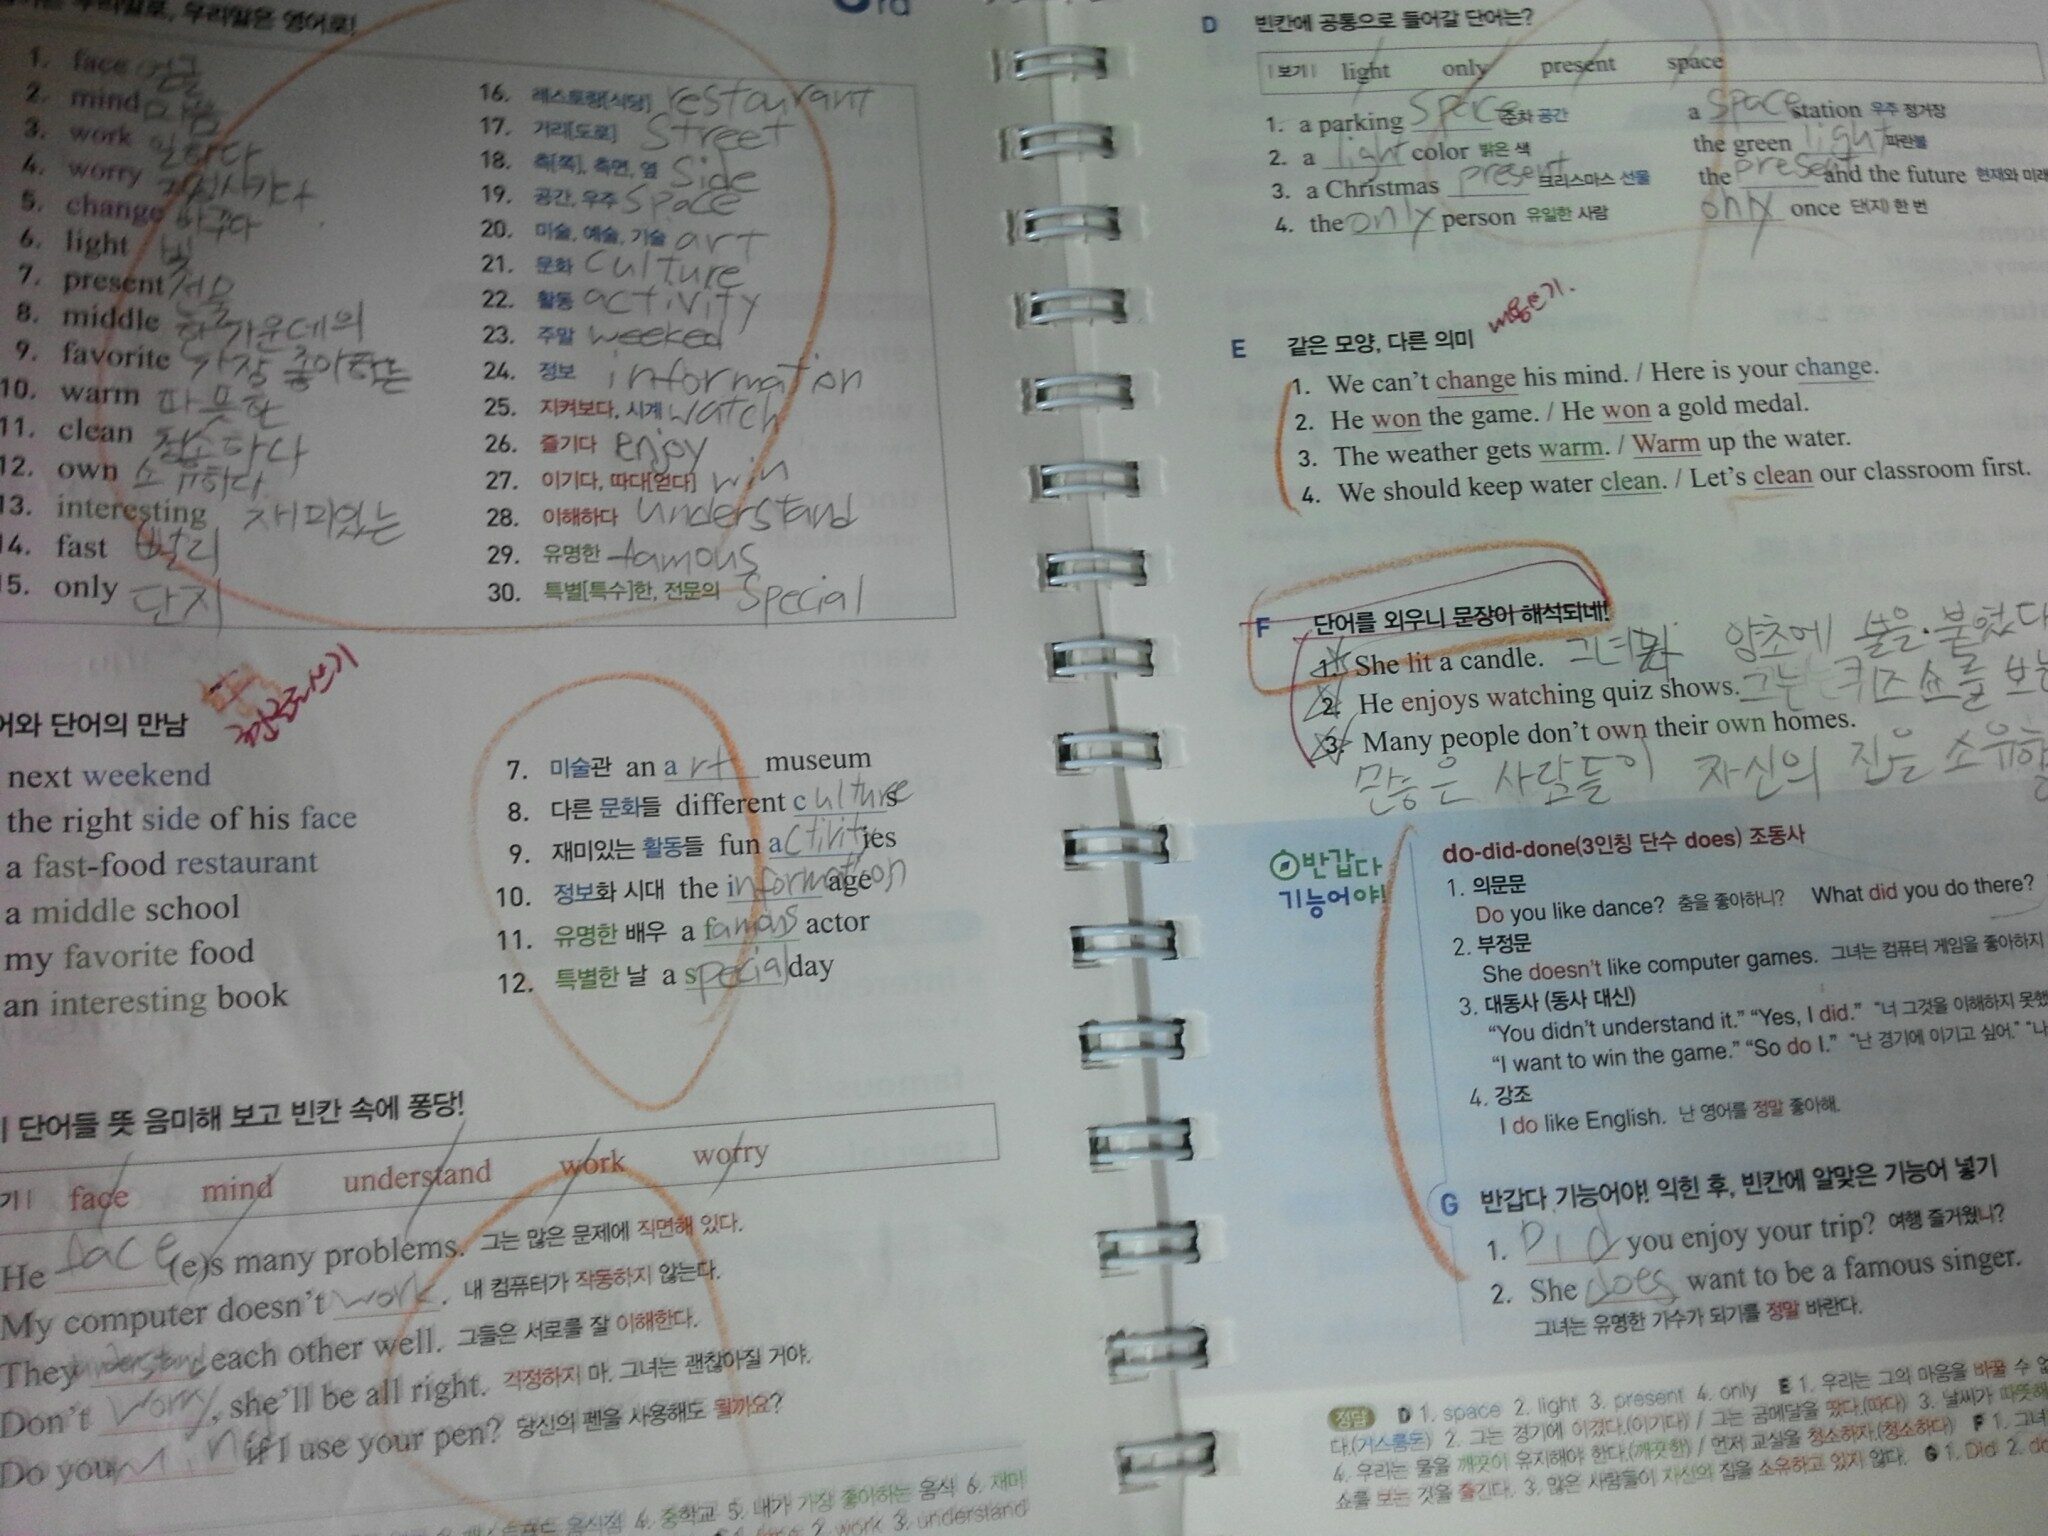 우리말로, 우리말은 영어로!
rd
1. face 얼굴
2. mind 마음
3. work 일하다
4. worry
5. change 바꾸다
6. light 빛
7. present 선물
8. middle 한가운데의
9. favorite 가장 좋아하는
10. warm 따뜻한
11. clean 청소하다
12. own 소유하다
13. interesting 재미있는
14. fast 빨리
15. only 단지
16. 레스토랑[식당] restaurant
17. 거리[도로] street
18. 측[쪽], 측면, 옆 side
19. 공간, 우주 space
20. 미술, 예술, 기술 art
21. 문화 culture
22. 활동 activity
23. 주말 weeked
24. 정보 information
25. 지켜보다, 시계 watch
26. 즐기다 enjoy
27. 이기다, 따다[얻다] win
28. 이해하다 understand
29. 유명한 famous
30. 특별[특수]한, 전문의 special
어와 단어의 만남
next weekend
the right side of his face
a fast-food restaurant
a middle school
my favorite food
an interesting book
7. 미술관 an art museum
8. 다른 문화들 different cultures
9. 재미있는 활동들 fun activities
10. 정보화 시대 the information age
11. 유명한 배우 a famous actor
12. 특별한 날 a special day
단어들 뜻 음미해 보고 빈칸 속에 퐁당!
기 | face mind understand work worry
He face (e)s many problems. 그는 많은 문제에 직면해 있다.
My computer doesn't work. 내 컴퓨터가 작동하지 않는다.
They understand each other well. 그들은 서로를 잘 이해한다.
Don't worry, she'll be all right. 걱정하지 마. 그녀는 괜찮아질 거야.
Do you mind if I use your pen? 당신의 펜을 사용해도 될까요?
4. 중학교 5. 내가 가장 좋아하는 음식 6. 재미
2. work 3. understand
D 빈칸에 공통으로 들어갈 단어는?
| 보기 | light only present space
1. a parking space 주차 공간 a space station 우주 정거장
2. a light color 밝은 색 the green light 파란불
3. a Christmas present 크리스마스 선물 the present and the future 현재와 미래
4. the only person 유일한 사람 only once 단(지) 한 번
E 같은 모양, 다른 의미
1. We can't change his mind. / Here is your change.
2. He won the game. / He won a gold medal.
3. The weather gets warm. / Warm up the water.
4. We should keep water clean. / Let's clean our classroom first.
F 단어를 외우니 문장이 해석되네!
1. She lit a candle. 양초에 불을 붙였다
2. He enjoys watching quiz shows. 그는 퀴즈 쇼를 보는
3. Many people don't own their own homes.
많은 사람들이 자신의 집을 소유
반갑다
기능어야!
do-did-done(3인칭 단수 does) 조동사
1. 의문문
Do you like dance? 춤을 좋아하니? What did you do there?
2. 부정문
She doesn't like computer games. 그녀는 컴퓨터 게임을 좋아하지
3. 대동사 (동사 대신)
"You didn't understand it." "Yes, I did." "너 그것을 이해하지 못했
"I want to win the game." "So do I." "난 경기에 이기고 싶어." "나
4. 강조
I do like English. 난 영어를 정말 좋아해.
G 반갑다 기능어야! 익힌 후, 빈칸에 알맞은 기능어 넣기
1. Did you enjoy your trip? 여행 즐거웠니?
2. She does want to be a famous singer.
그녀는 유명한 가수가 되기를 정말 바란다.
정답 D 1. space 2. light 3. present 4. only E 1. 우리는 그의 마음을 바꿀 수 없
다.(거스름돈) 2. 그는 경기에 이겼다.(이기다) / 그는 금메달을 땄다.(따다) 3. 날씨가 따뜻해
4. 우리는 물을 깨끗이 유지해야 한다.(깨끗한) / 먼저 교실을 청소하자.(청소하다) F 1. 그녀
쇼를 보는 것을 즐긴다. 3. 많은 사람들이 자신의 집을 소유하고 있지 않다. G 1. Did 2. do